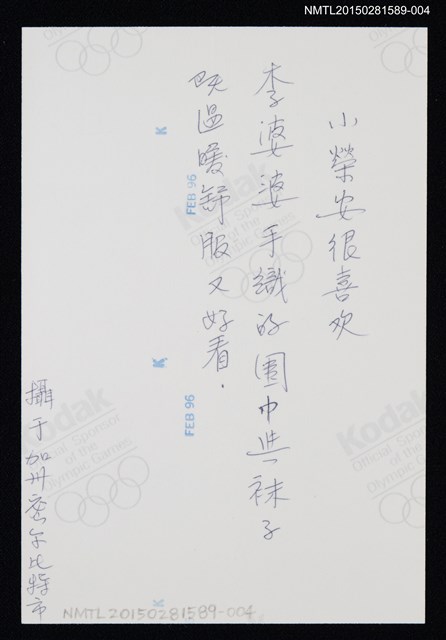 NMTL20150281589-004
小榮安很喜欢
李婆婆手織的圍巾与袜子
既温暖舒服又好看.
攝于加州密尔比特市
K
FEB 96
K
FEB 96
K
Kodak
Official Sponsor
of the
Olympic Games
Kodak
Official Sponsor
of the
Olympic Games
Kodak
Official Sponsor
of the
Olympic Games
NMTL20150281589-004